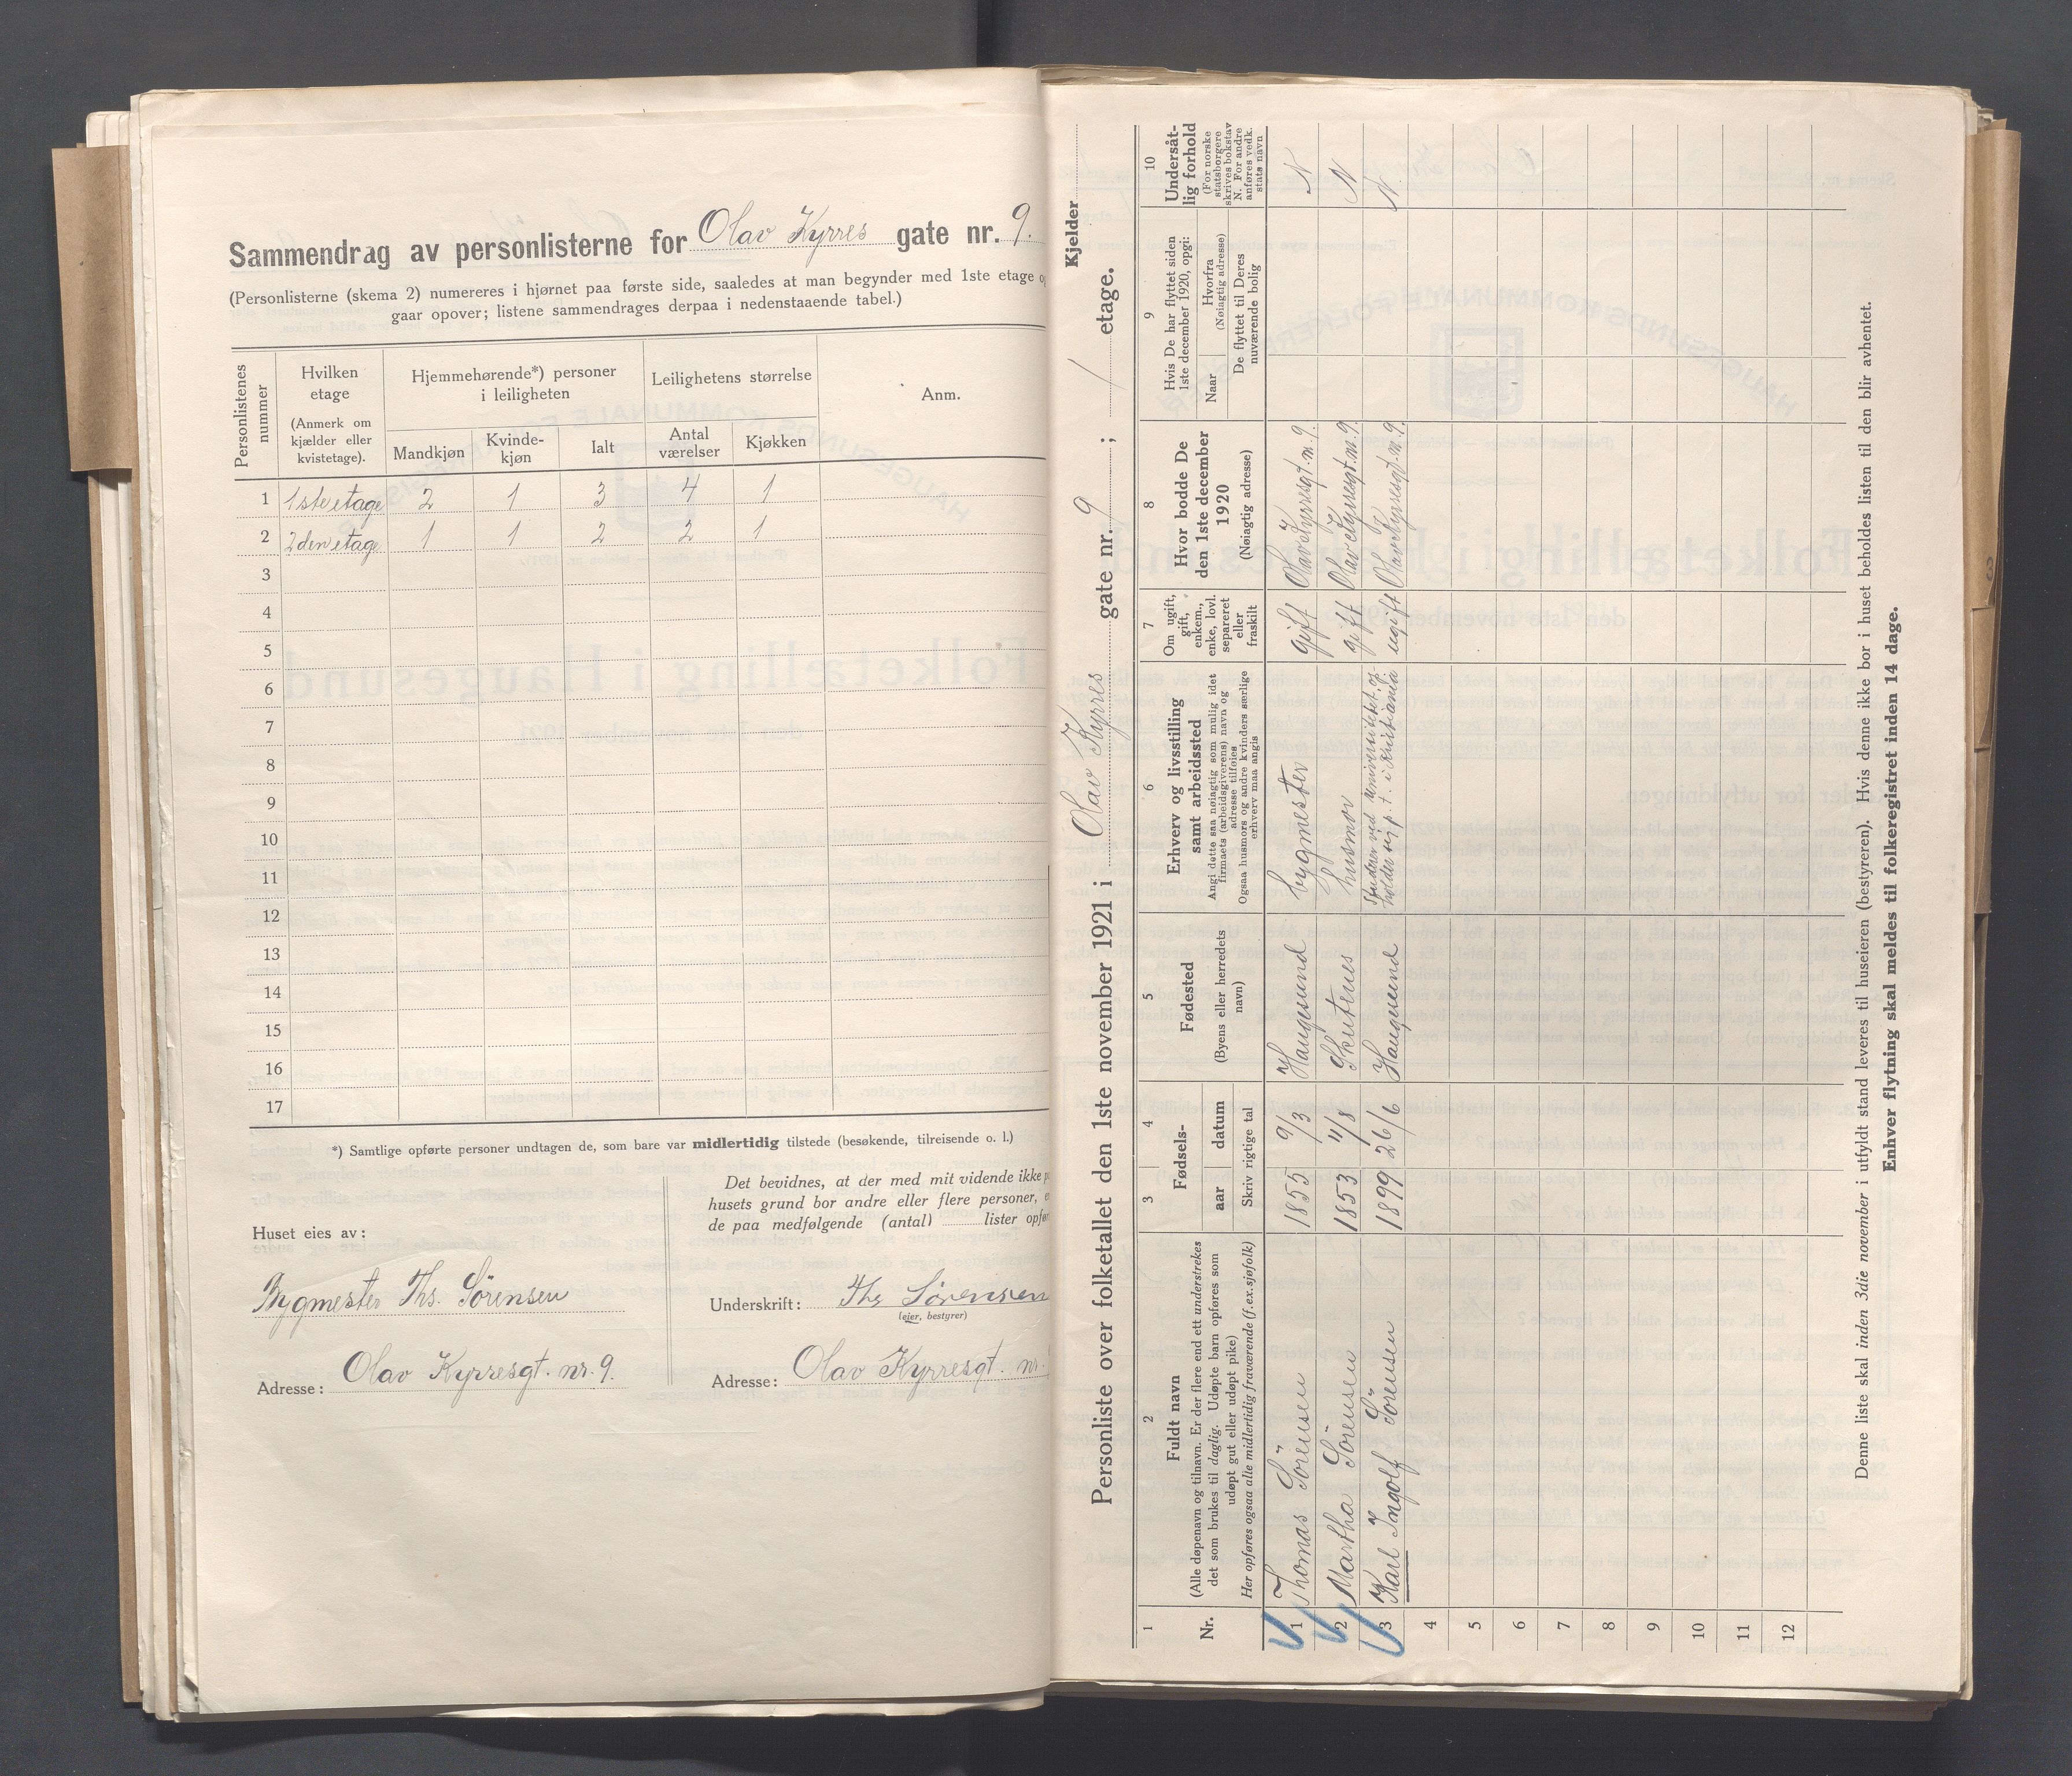 Sammendrag av personlisterne for Olav Kyrres gate nr. 9.
(Personlisterne (skema 2) numereres i hjørnet paa første side, saaledes at man begynder med 1ste etage
gaar opover; listene sammendrages derpaa i nedenstaaende tabel.)
Personlistenes nummer
Hvilken etage
(Anmerk om kjælder eller kvistetage).
Hjemmehørende*) personer i leiligheten
Leilighetens størrelse
Anm.
Mandkjøn Kvinde-kjøn Ialt Antal værelser Kjøkken
1 1ste etage 2 1 3 4 1
2 2den etage 1 1 2 2 1
3
4
5
6
7
8
9
10
11
12
13
14
15
16
17
*) Samtlige opførte personer undtagen de, som bare var midlertidig tilstede (besøkende, tilreisende o. l.)
Huset eies av:
Bygmester Ths. Sörensen
Adresse: Olav Kyrresgt. nr. 9.
Det bevidnes, at der med mit vidende ikke
husets grund bor andre eller flere personer,
de paa medfølgende (antal) lister
Underskrift: Ths Sörensen
(eier, bestyrer)
Adresse: Olav Kyrresgt. nr.
Kjelder
Personliste over folketallet den 1ste november 1921 i Olav Kyrres gate nr. 9 ; 1 etage.
1 2 3 4 5 6 7 8 9 10
Nr.
Fuldt navn
(Alle døpenavn og tilnavn. Er der flere end ett understrekes
det som brukes til daglig. Udøpte barn opføres som
udøpt gut eller udøpt pike)
Her opføres ogsaa alle midlertidig fraværende (f.ex. sjøfolk)
Fødsels-
aar datum
Skriv rigtige tal
Fødested
(Byens eller herredets navn)
Erhverv og livsstilling
samt arbeidssted
Angi dette saa nøiagtig som mulig idet
firmaets (arbeidsgiverens) navn og
adresse tilføies
Ogsaa husmors og andre kvinders særlige
erhverv maa angis
Om ugift,
gift,
enkem.,
enke, lovl.
separeret
eller
fraskilt
Hvor bodde De
den 1ste december
1920
(Nøiagtig adresse)
Hvis De har flyttet siden
1ste december 1920, opgi:
Naar
Hvorfra
(Nøiagtig adresse)
De flyttet til Deres
nuværende bolig
Undersåt-
lig forhold
(For norske
statsborgere
skrives bokstav
N. For andre
anføres vedk.
stats navn
1 Thomas Sörensen 1855 9/3 Haugesund bygmester gift Olav Kyrresgt. nr. 9. N
2 Martha Sörensen 1853 11/8 Skutenes husmor gift Olav Kyrresgt. nr. 9. N
3 Karl Ingolf Sörensen 1899 26/6 Haugesund Studerer ved universitetet, op-
holder sig p. t. i Kristiania ugift Olav Kyrresgt. nr. 9. N.
4
5
6
7
8
9
10
11
12
Denne liste skal inden 3die november i utfyldt stand leveres til huseieren (bestyreren). Hvis denne ikke bor i huset beholdes listen til den blir avhentet.
Enhver flytning skal meldes til folkeregistret inden 14 dage.